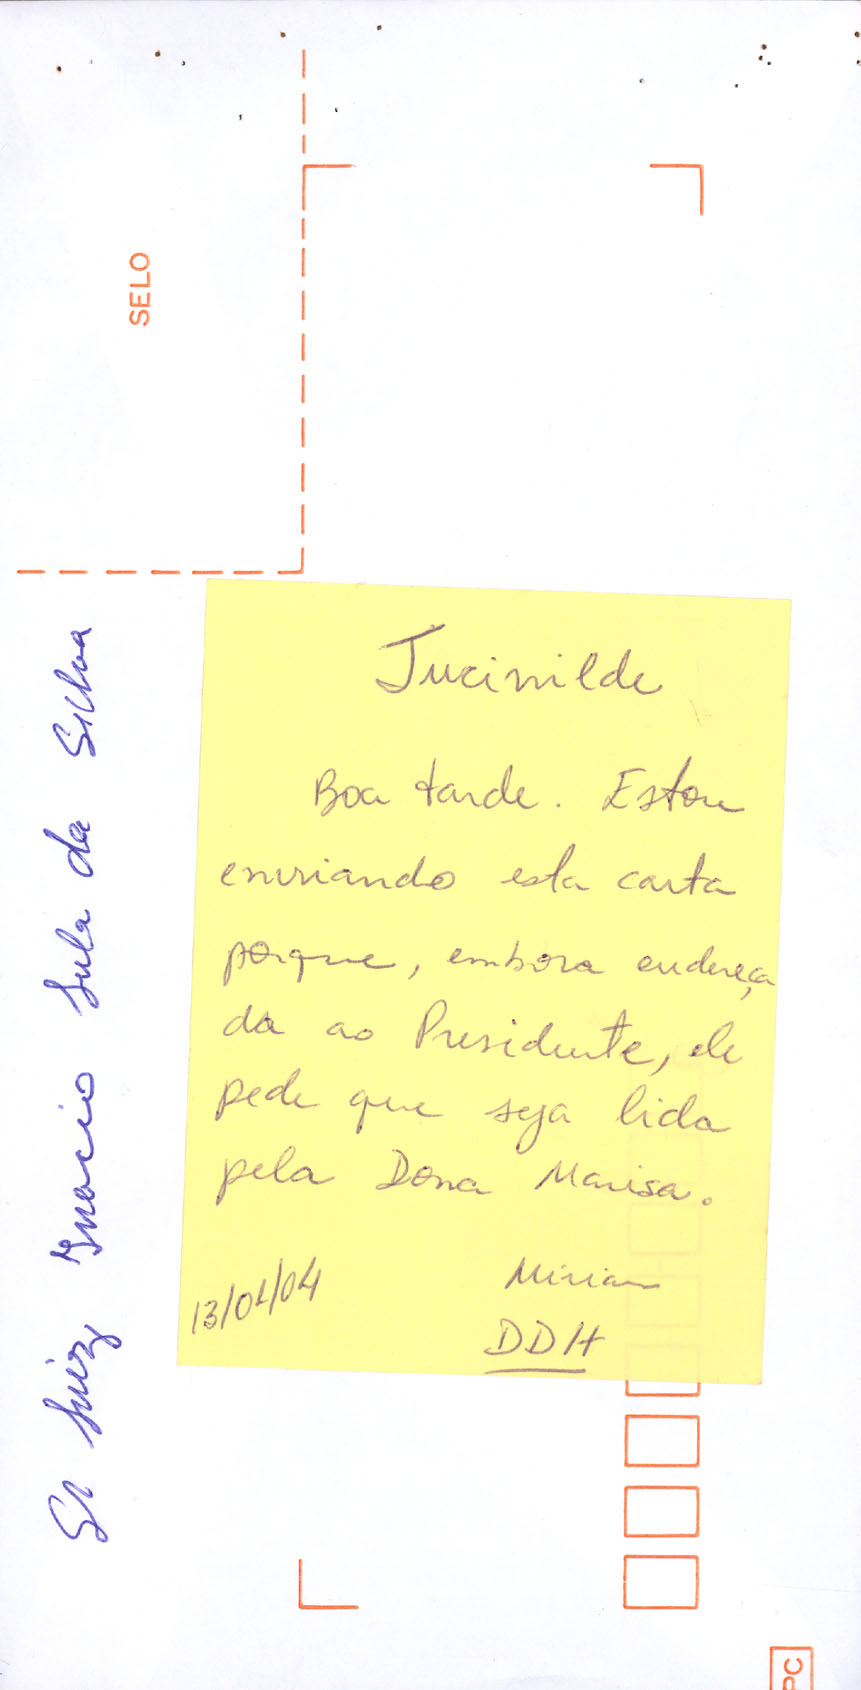 SELO
Sr Luiz Inacio Lula da Silva
Jucinilde
Boa tarde. Estou
enviando esta carta
porque, embora endereça
da ao Presidente, ele
pede que seja lida
pela Dona Marisa.
13/04/04
Mirian
DDH
PC